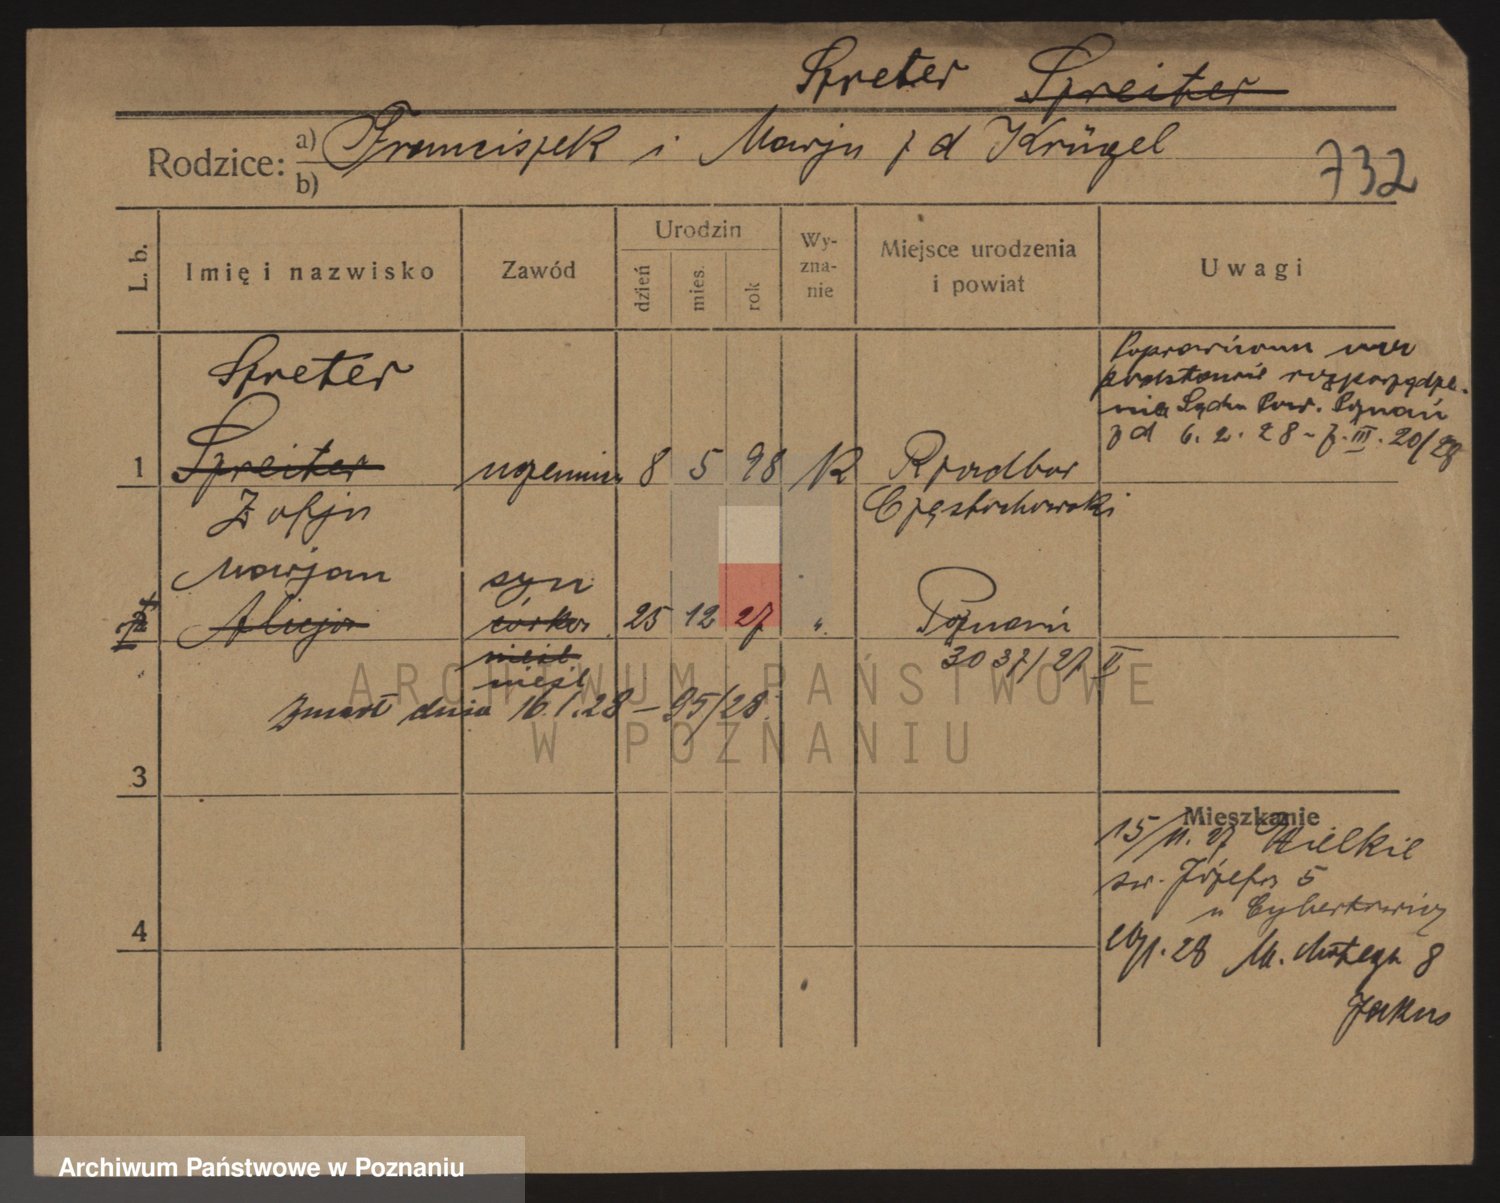 Spreter Spreiter
Rodzice: a) Franciszek i Marja z d Krügel
b)
732
L. b.
Imię i nazwisko
Zawód
Urodzin
dzień
mies.
rok
Wy-
zna-
nie
Miejsce urodzenia
i powiat
Uwagi
Spreter
1 Spreiter uczennica 8 5 98 K
Zofja
Częstochowski
Poprawiono na
podstawie rozporządze-
nia Sądu Pow. Poznań
z d 6.2.28 - z. III. 20/28
Marjan syn
2 Alicja córka 25 12 27 " Poznań
nieśl 3037/27 II
nieśl
zmarł dnia 16.1.28 - 95/28
3
4
Mieszkanie
15/11.27 Wielkie
św. Józefa 5
u
28 M. 8
ARCHIWUM PAŃSTWOWE
W POZNANIU
Archiwum Państwowe w Poznaniu